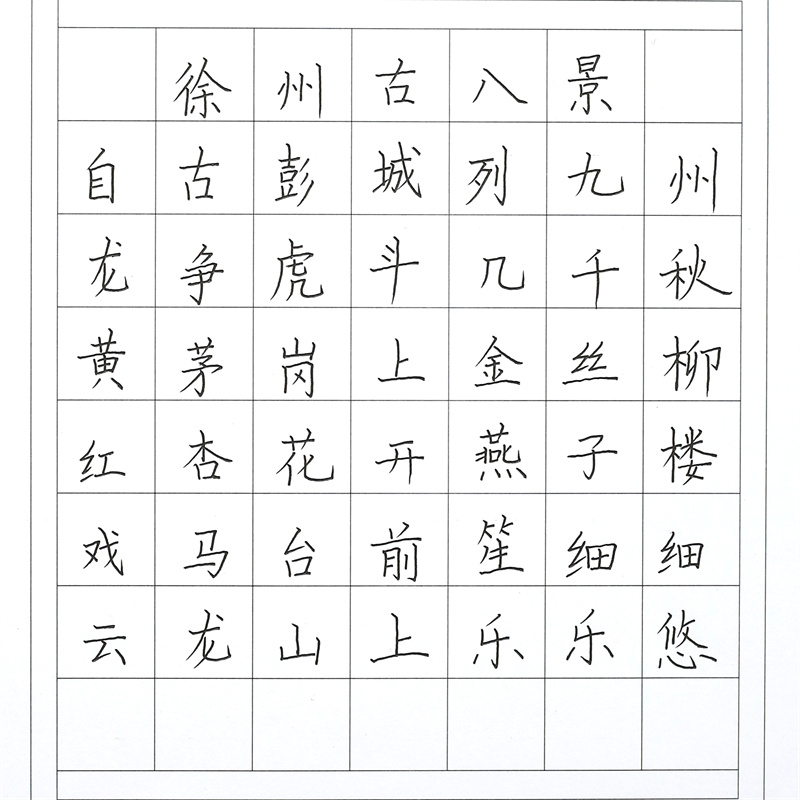 徐州古八景
自古彭城列九州
龙争虎斗几千秋
黄茅岗上金丝柳
红杏花开燕子楼
戏马台前笙细细
云龙山上乐乐悠